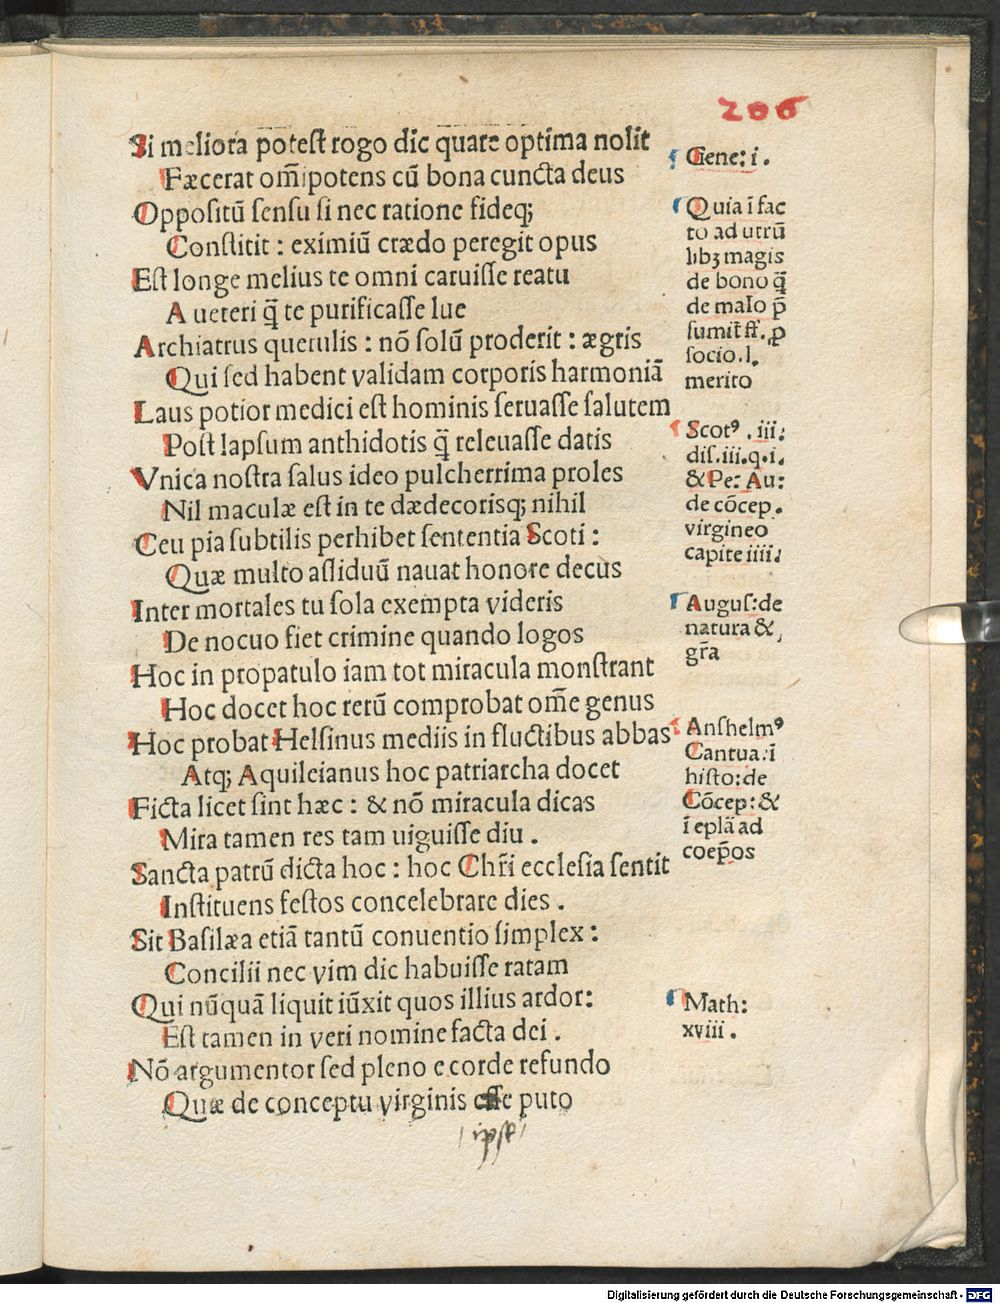 206
Si meliora potest rogo dic quare optima nolit
Fæcerat om̃ipotens cũ bona cuncta deus
Oppositũ sensu si nec ratione fideq;
Constitit : eximiũ crædo peregit opus
Est longe melius te omni caruisse reatu
A ueteri q̃ te purificasse lue
Archiatrus querulis : nõ solũ proderit : ægris
Qui sed habent validam corporis harmoniã
Laus potior medici est hominis seruasse salutem
Post lapsum anthidotis q̃ releuasse datis
Vnica nostra salus ideo pulcherrima proles
Nil maculæ est in te dædecorisq; nihil
Ceu pia subtilis perhibet sententia Scoti :
Quæ multo assiduũ nauat honore decus
Inter mortales tu sola exempta videris
De nocuo fiet crimine quando logos
Hoc in propatulo iam tot miracula monstrant
Hoc docet hoc rerũ comprobat om̃e genus
Hoc probat Helsinus mediis in fluctibus abbas
Atq; Aquileianus hoc patriarcha docet
Ficta licet sint hæc : & nõ miracula dicas
Mira tamen res tam uiguisse diu .
Sancta patrũ dicta hoc : hoc Chr̃i ecclesia sentit
Instituens festos concelebrare dies .
Sit Basilæa etiã tantũ conuentio simplex :
Concilii nec vim dic habuisse ratam
Qui nũquã liquit iũxit quos illius ardor:
Est tamen in veri nomine facta dei .
Nõ argumentor sed pleno e corde refundo
Quæ de conceptu virginis esse puto
ipse
Gene: i .
Quia ĩ fac
to ad utrũ
libꝫ magis
de bono q̃
de malo p̃
sumit̃ ff. ꝑ
socio .l.
merito
Scotꝰ . iii:
dis. iii. q. i.
& Pe: Au:
de cõcep.
virgineo
capite iiii:
Augus: de
natura &
gr̃a
Anshelmꝰ
Cantua: ĩ
histo: de
Cõcep: &
ĩ epl̃a ad
coep̃os
Math:
xviii .
Digitalisierung gefördert durch die Deutsche Forschungsgemeinschaft - DFG